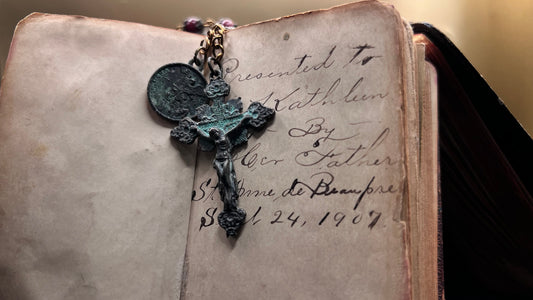 Presented to
Kathleen
- By -
Her Father
St. Anne de Beaupre
Sept. 24, 1907.